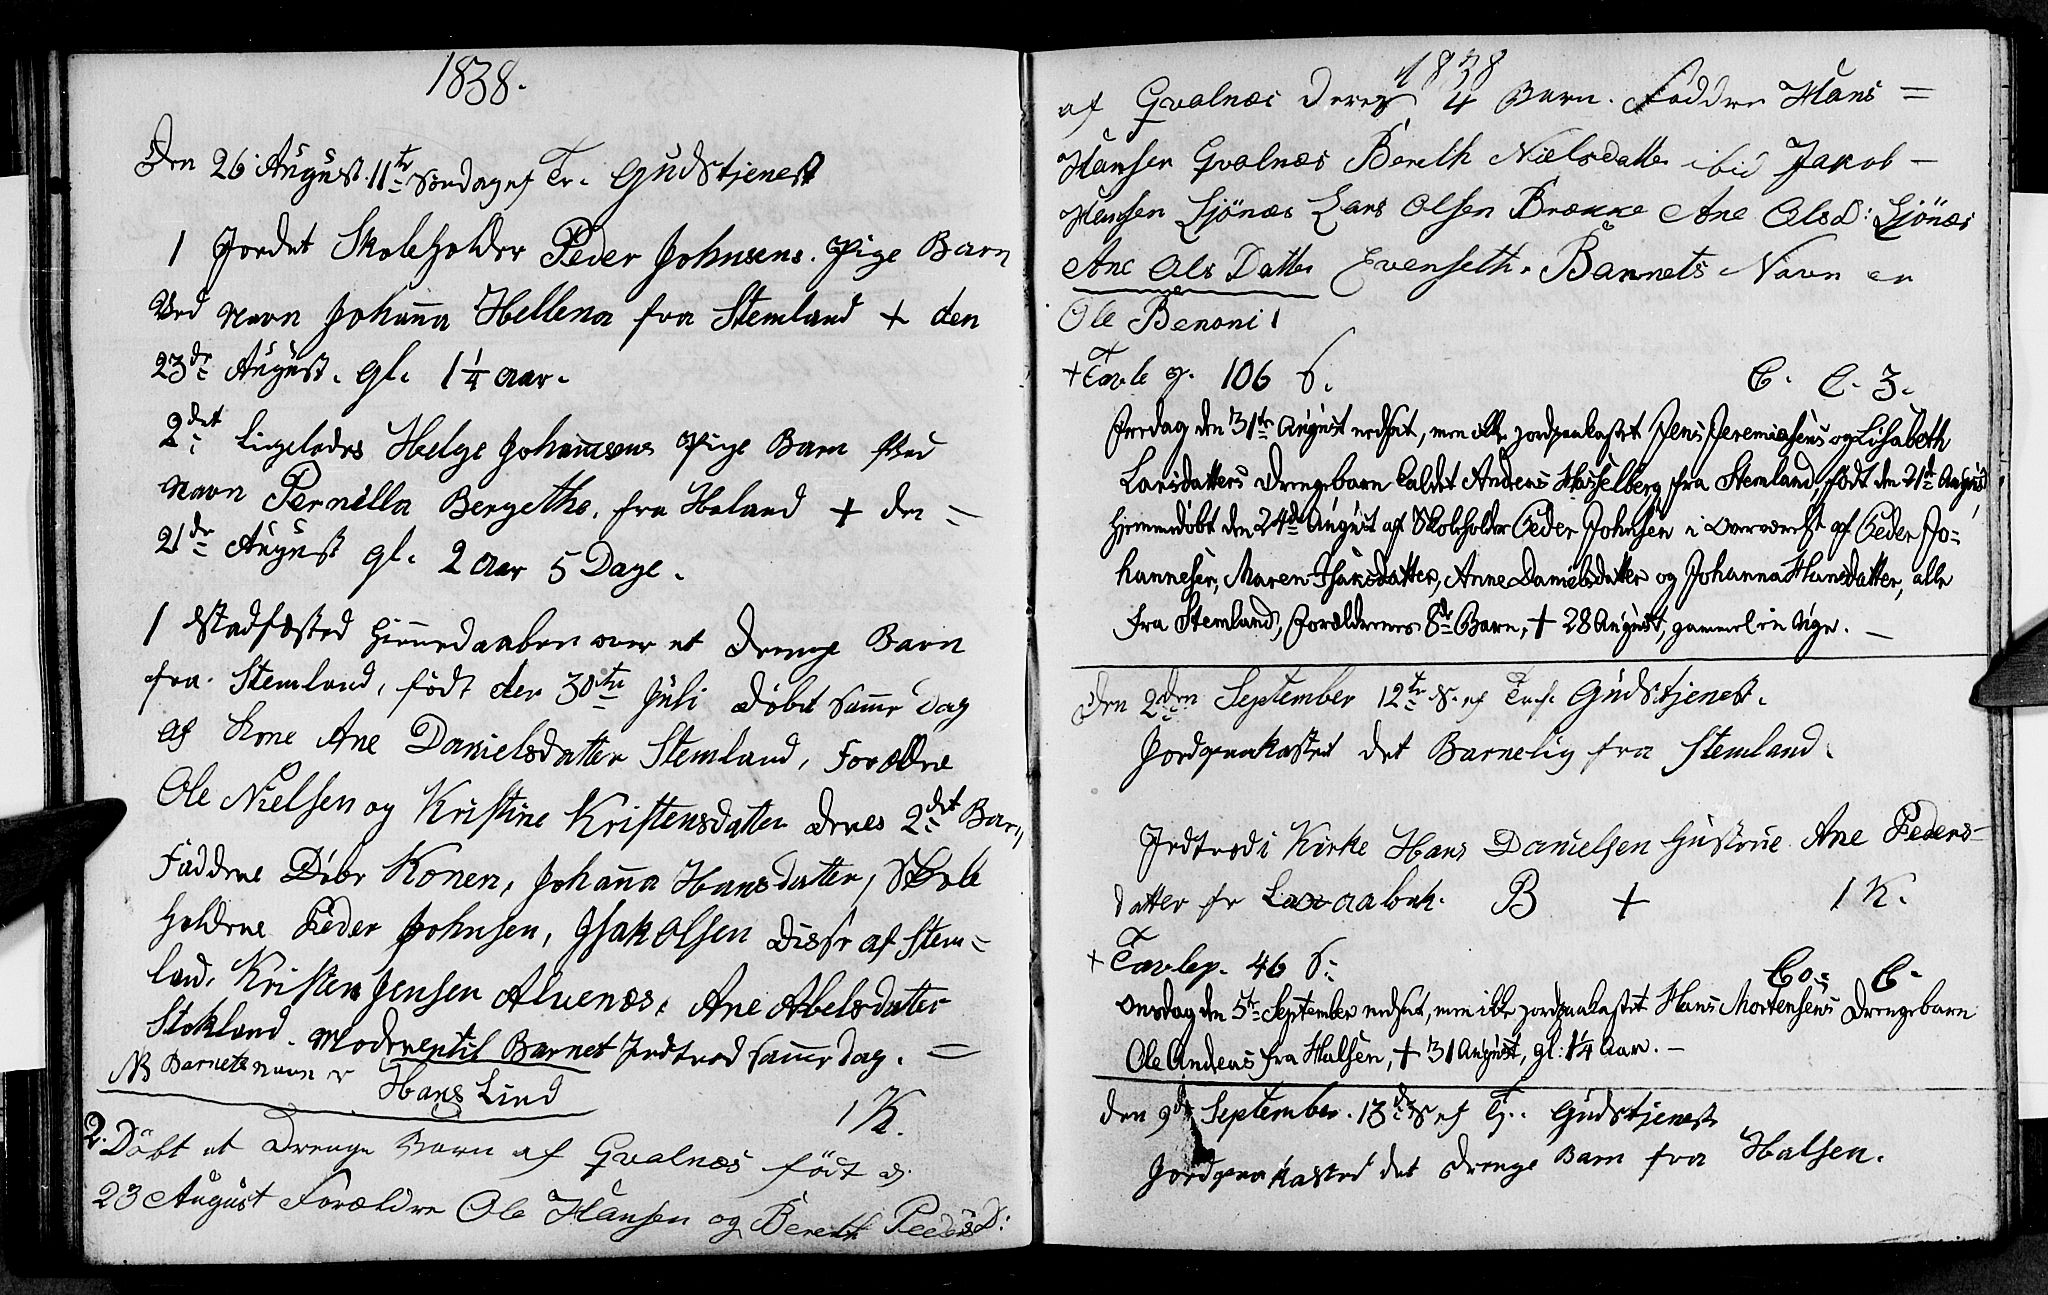 1838.
Den 26 August 11te Søndag ef Tr. Gudstjenest
1 Jordet Skoleholder Peder Johnsens Pige Barn
Ved Navn Johanna Hellena fra Stemland + den
23de August. gl. 1 1/4 aar.
2det Ligeledes Helge Johannsens Pige Barn Ved
Navn Pernilla Bergethe, fra Holand + den =
21de August gl. 2 aar 5 Dage.
1 Stadfæsted Hiemedaaben over et Drenge Barn
fra Stemland, født den 30te Juli døbt samme Dag
af Kone Ane Danielsdatter Stemland, Forældre
Ole Nielsen og Kristine Kristensdatter deres 2det Barn,
Faddre Døbe Konen, Johanna Hansdatter, Skole
holdere Peder Johnsen, Isak Olsen disse af Stem=
land, Kristen Jensen Alvenæs, Ane Abelsdatter
Stokland. Moderen til Barnet Indtræd samme dag. =
NB Barnets navn er Hans Lind
1 K.
2. Døbt et Drenge Barn af Qvalnæs født d.
23 August Forældre Ole Hansen og Bereth PedersD:
1838
af Qvalnæs deres 4 Barn. Faddre Hans =
Hansen Qvalnæs Bereth Nielsdatter ibid Jakob -
Hansen Ljönæs Lars Olsen Brække Ane OlsD: Ljönæs
Ane Ols Datter Evenseth. Barnets Navn er
Ole Benoni 1
+ Tavle p. 106 S. C. C. 3.
Fredag den 31te August nedsat, men ikke jordpaakastet Jens Jeremiasens og Lisabeth
Larsdatters Drengebarn kaldet Andreas Hasselberg fra Stemland, født den 21de August
hjemmedøbt den 24de August af Skoleholder Peder Johnsen i Overværelse af Peder Jo=
hannesen, Maren Isaksdatter, Anne Danielsdatter og Johanna Hansdatter, alle
fra Stemland, Forældrenes 8de Barn, + 28 August, gammel en Uge. —
Den 2den September 12te S. ef Tref. Gudstjenest.
Jordpaakasted det Barnelig fra Stemland.
Indtræd i Kirke Hans Danielsen Hustrue Ane Peders-
datter fr Laxaabak. B + 1 K.
+ Tavlep. 46 S. Co. C.
Onsdag den 5te September nedsat, men ikke jordpaakastet Hans Mortensens Drengebarn
Ole Andreas fra Halsen, + 31 August, gl: 1 1/4 Aar. —
den 9de September. 13de S ef T. Gudstjenest
Jordpaakasted det Drenge Barn fra Halsen.